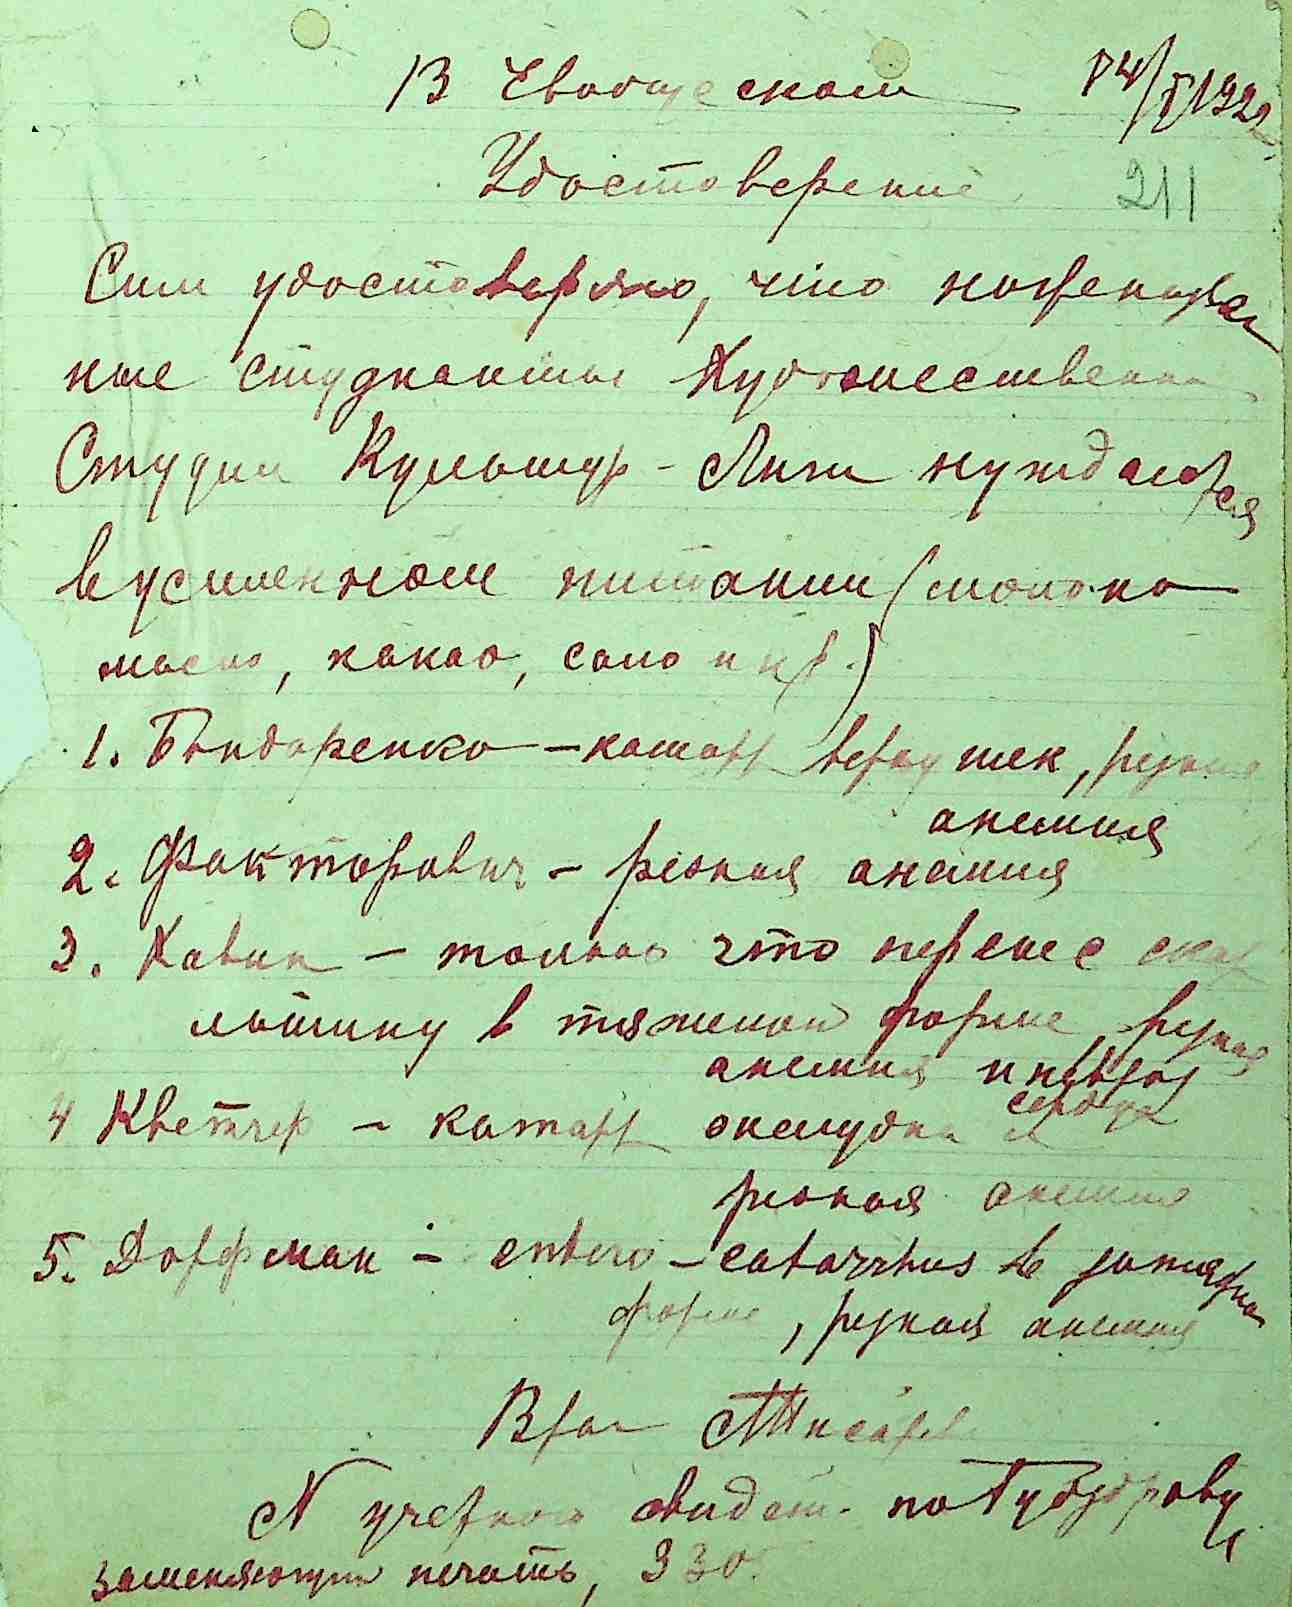 В Евобщеском
1922
Удостоверение
211
Сим удостоверяю, что поименован
ные студканты Художественн
Студии Культур-Лиги нуждаются
в усиленном питании (молоко
масло, какао, сало и пр.)
1. Бондаренко – катарр верхушек, резкая
анемия
2. Факторович – резкая анемия
3. Хавин – только что перенес скар
латину в тяжелой форме, резкая
анемия и невроз
сердца
4 Кветчер – катарр желудка и
резкая анемия
5. Дорфман – entero-catarrhus в затяжной
форме, резкая анемия
Врач
N учетного свидет. по Губздраву
заменяющий печать, 330